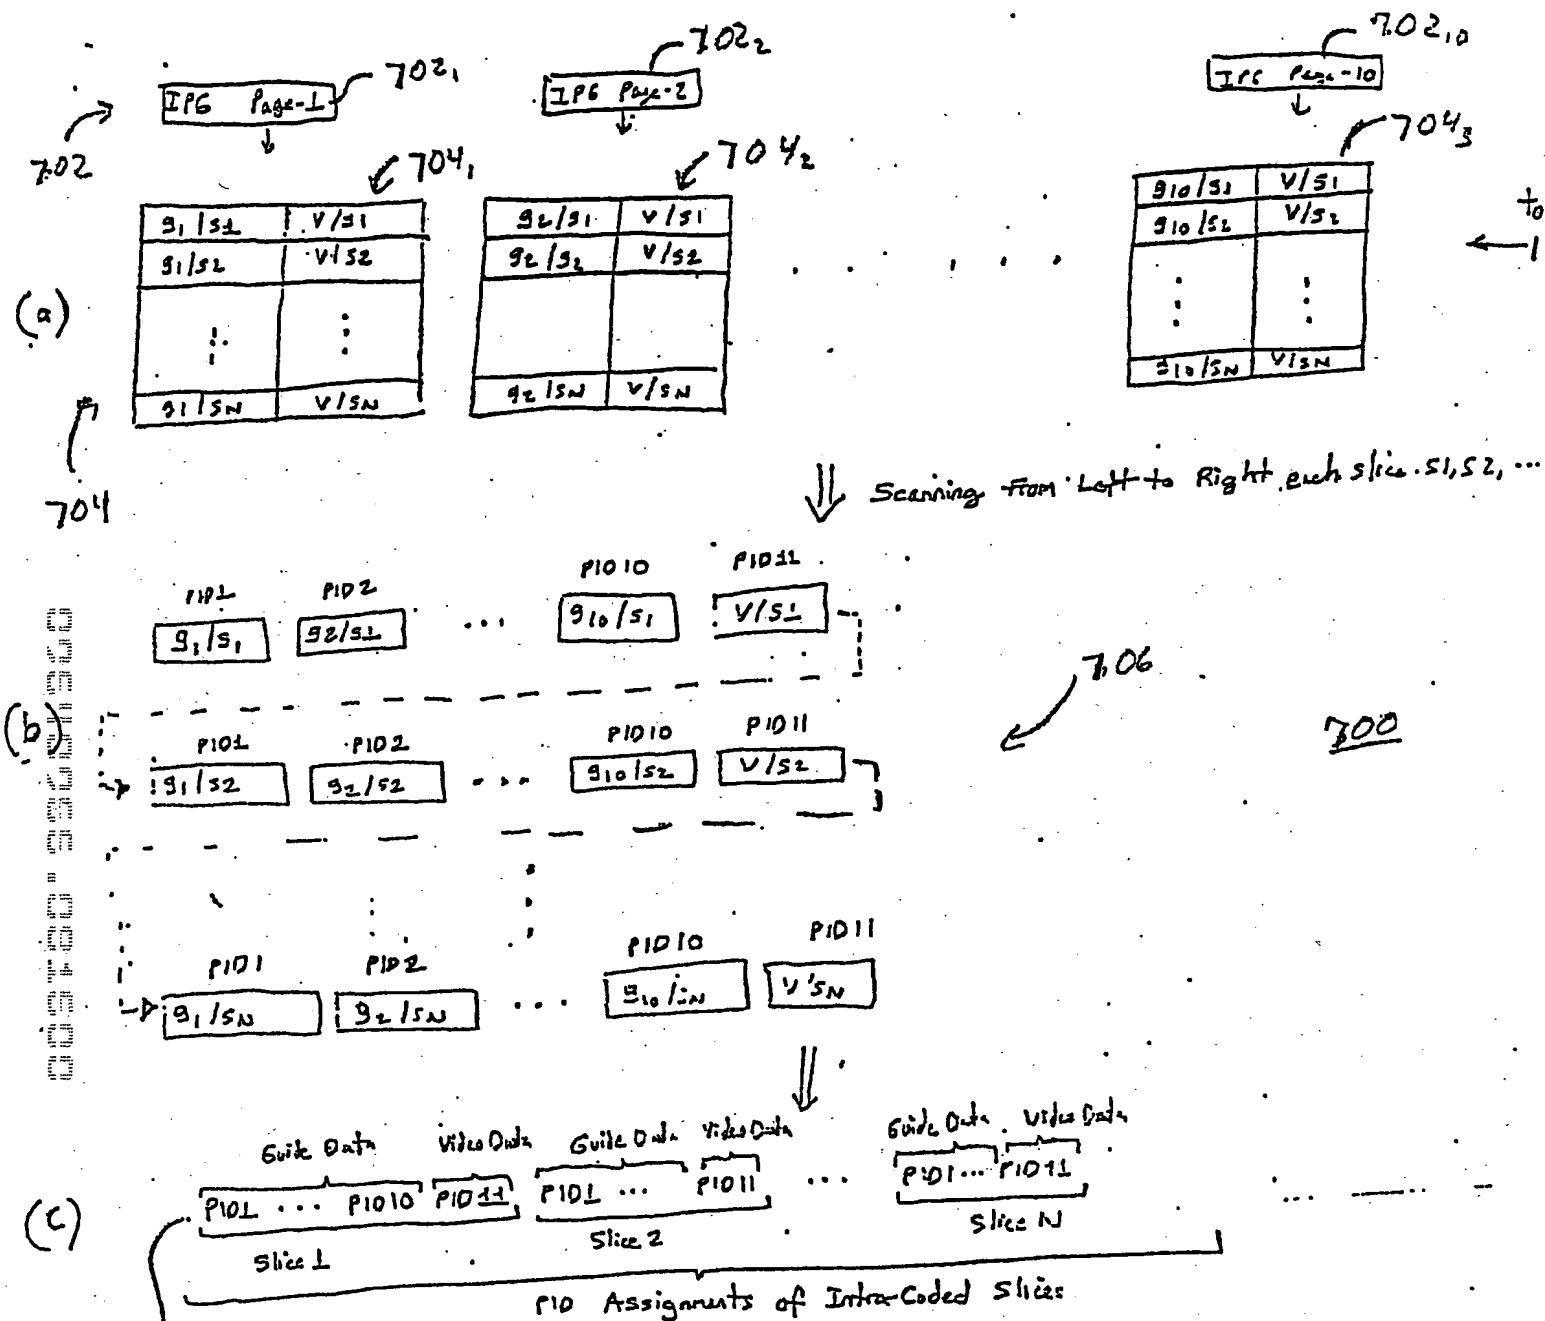 702₁
702₂
702₁₀
IPG Page-1
IPG Page-2
IPG Page-10
702
704₁
704₂
704₃
t₀
g₁/s1 V/s1
g2/s1 V/s1
g10/s1 V/s1
g₁/s2 V/s2
g2/s2 V/s2
g10/s2 V/s2
(a)
g1/sN V/sN
g2/sN V/sN
g10/sN V/sN
704
Scanning From Left to Right each slice s1, s2, ...
PID1 PID2 PID10 PID11
g₁/s₁ g2/s1 ... g₁₀/s₁ V/s1
706
(b)
700
PID1 PID2 PID10 PID11
g1/s2 g2/s2 ... g10/s2 V/s2
PID1 PID2 PID10 PID11
g1/sN g2/sN ... g10/sN V/sN
Guide Data Video Data Guide Data Video Data Guide Data Video Data
(c)
PID1 ... PID10 PID11 PID1 ... PID11 ... PID1... PID11
Slice 1 Slice 2 Slice N
PID Assignments of Intra-Coded Slices